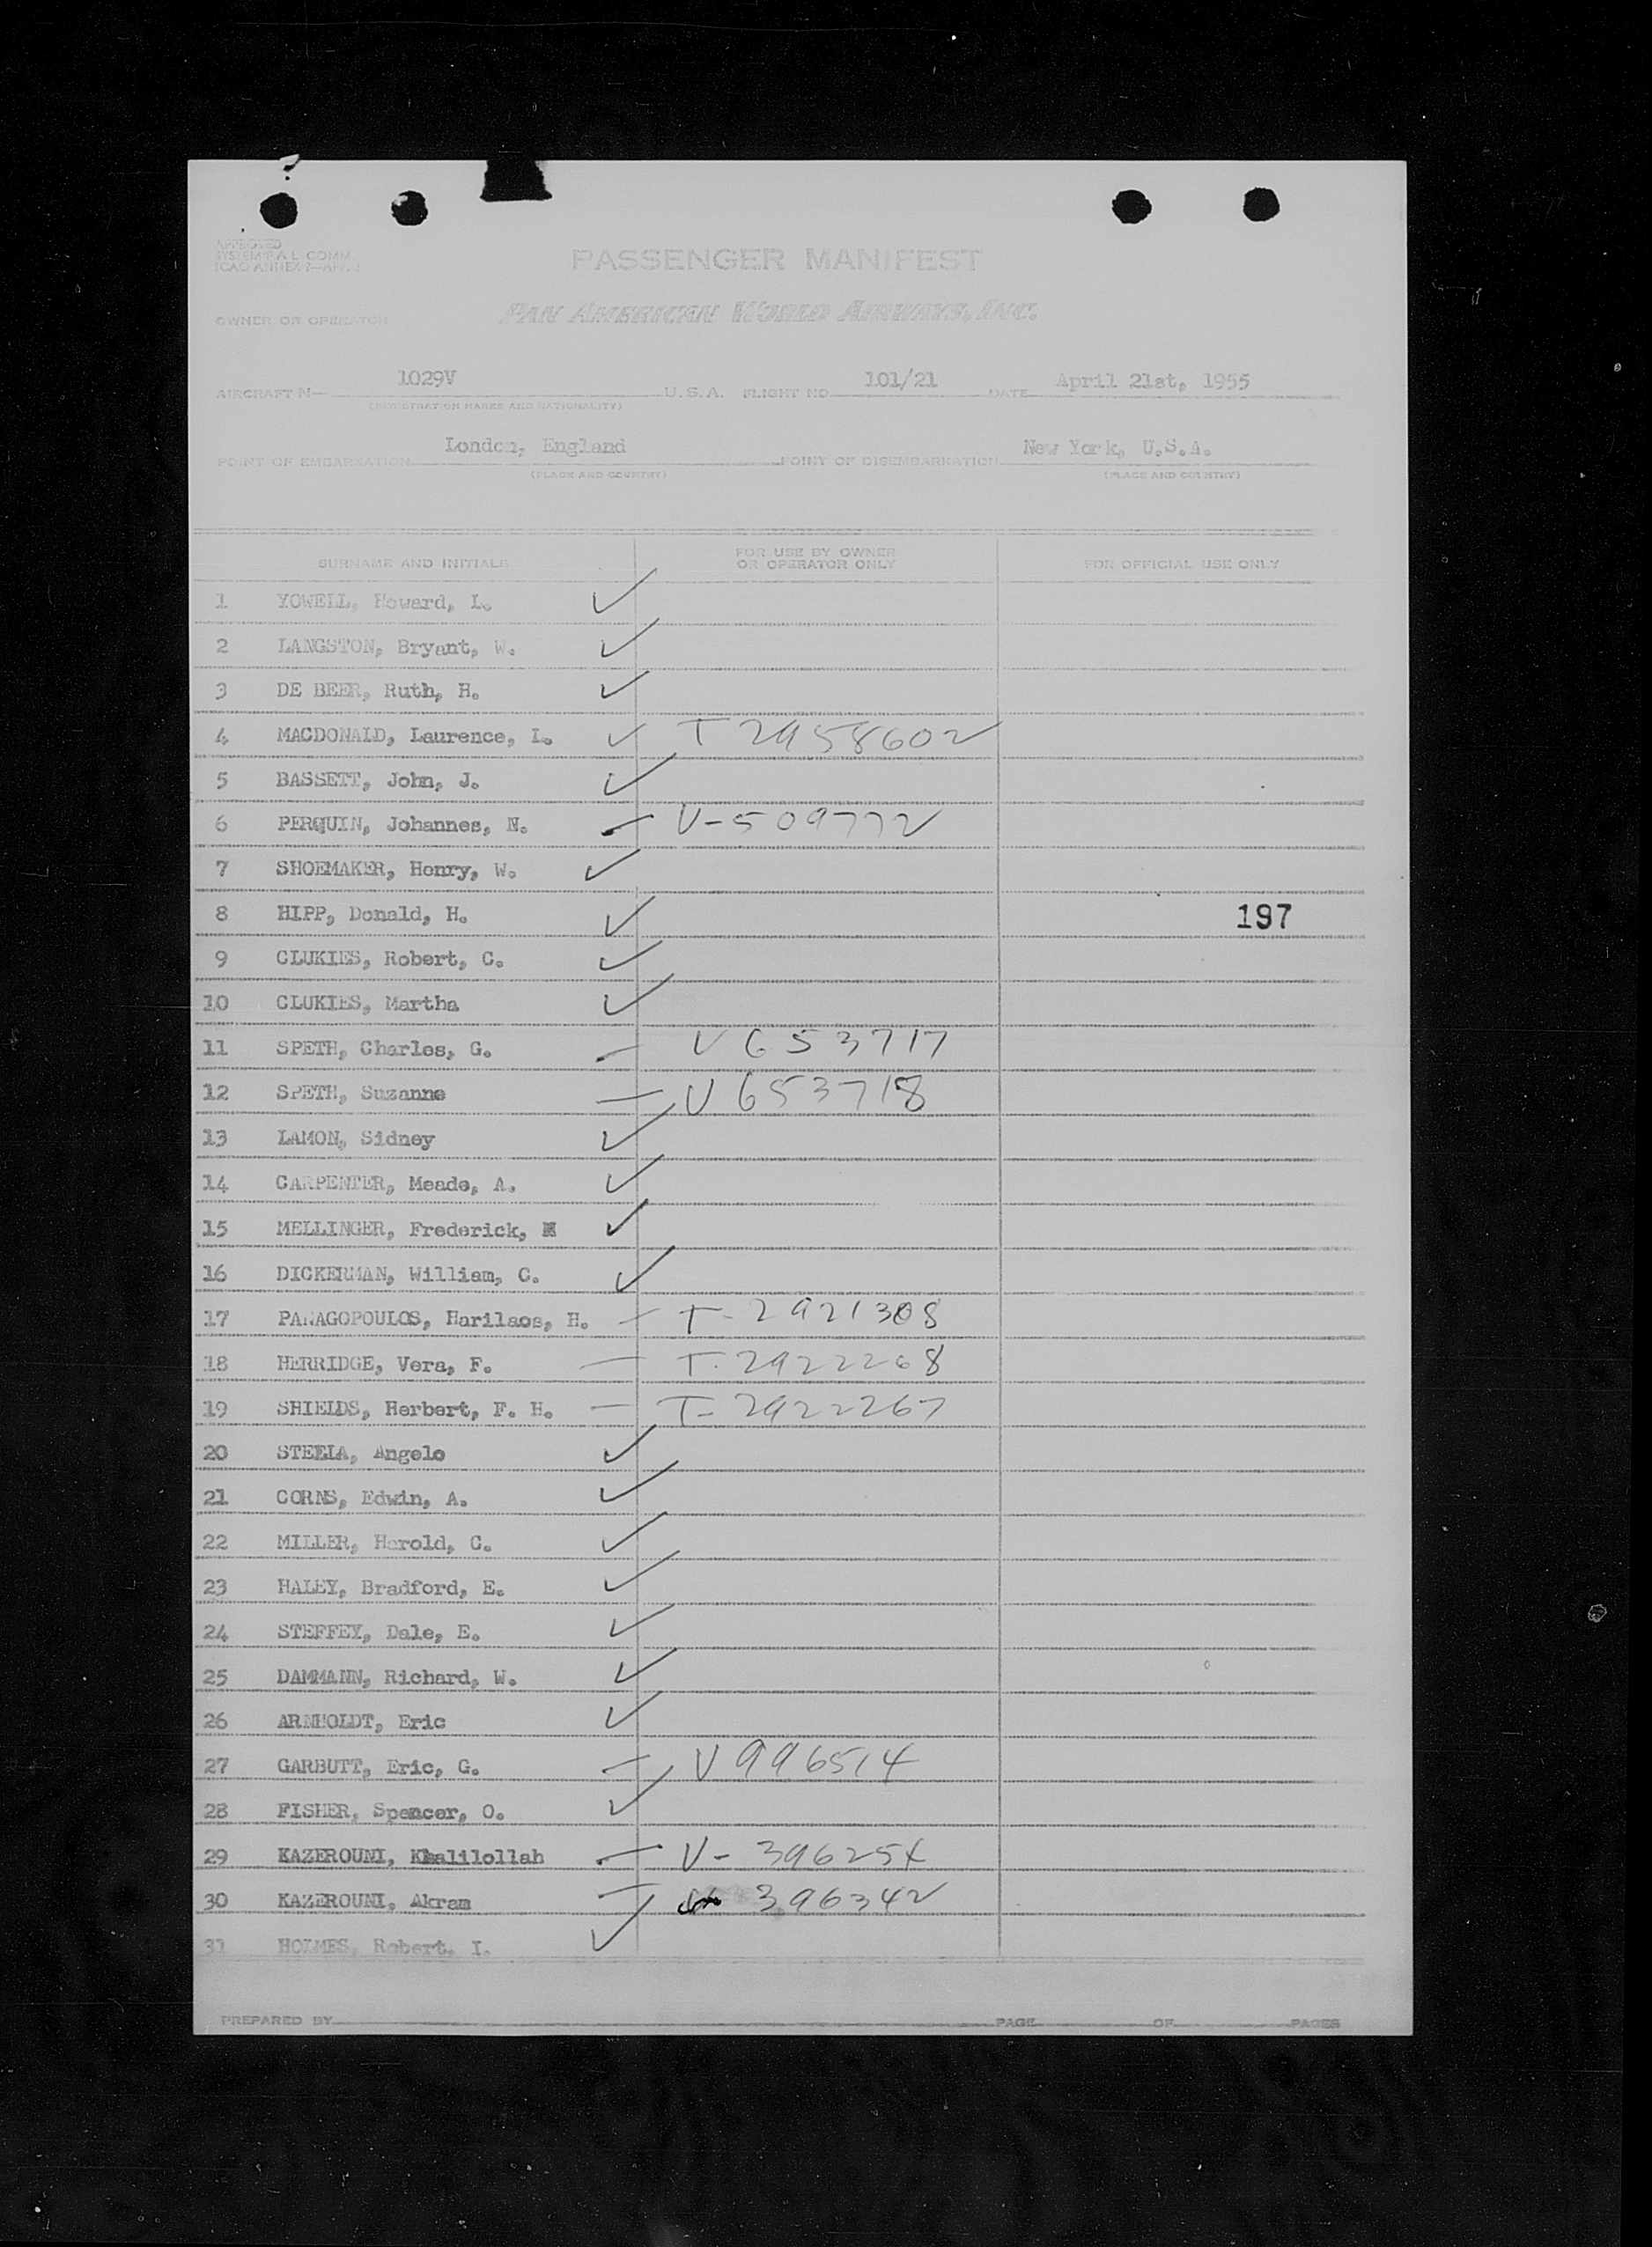 APPROVED
SYSTEM P.A.L. COMM.
PASSENGER MANIFEST
OWNER OR OPERATOR PAN AMERICAN WORLD AIRWAYS, INC.
AIRCRAFT N— 1029V U.S.A. FLIGHT NO. 101/21 DATE April 21st, 1955
(REGISTRATION MARKS AND NATIONALITY)
POINT OF EMBARKATION London, England POINT OF DISEMBARKATION New York, U.S.A.
(PLACE AND COUNTRY) (PLACE AND COUNTRY)
SURNAME AND INITIALS FOR USE BY OWNER OR OPERATOR ONLY FOR OFFICIAL USE ONLY
1 YOWELL, Howard, L. ✓
2 LANGSTON, Bryant, W. ✓
3 DE BEER, Ruth, H. ✓
4 MACDONALD, Laurence, L. ✓ T 2958602
5 BASSETT, John, J. ✓
6 PERQUIN, Johannes, N. — V-509772
7 SHOEMAKER, Henry, W. ✓
8 HIPP, Donald, H. ✓ 197
9 CLUKIES, Robert, C. ✓
10 CLUKIES, Martha ✓
11 SPETH, Charles, G. — V 653717
12 SPETH, Suzanne — V 653718
13 LAMON, Sidney ✓
14 CARPENTER, Meade, A. ✓
15 MELLINGER, Frederick, ✓
16 DICKERMAN, William, C. ✓
17 PANAGOPOULOS, Harilaos, H. — T-2921308
18 HERRIDGE, Vera, F. — T-2922268
19 SHIELDS, Herbert, F. H. — T-2922267
20 STEELA, Angelo ✓
21 CORNS, Edwin, A. ✓
22 MILLER, Harold, C. ✓
23 HALEY, Bradford, E. ✓
24 STEFFEY, Dale, E. ✓
25 DAMMANN, Richard, W. ✓
26 ARNHOLDT, Eric ✓
27 GARBUTT, Eric, G. — V 996514
28 FISHER, Spencer, O. ✓
29 KAZEROUNI, Khalilollah — V-396254
30 KAZEROUNI, Akram — 396342
31 HOLMES, Robert, I. ✓
PREPARED BY PAGE OF PAGES